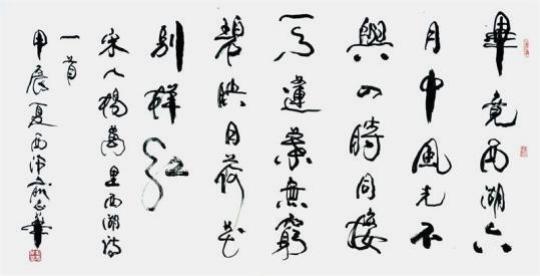 畢竟西湖六
月中風光不
與四時同接
天蓮葉無窮
碧映日荷花
别樣紅
宋人楊萬里西湖詩
一首
甲辰夏西